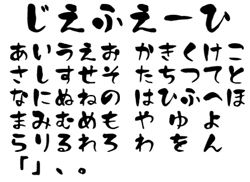 じえふえーひ
あいうえお かきくけこ
さしすせそ たちつてと
なにぬねの はひふへほ
まみむめも や ゆ よ
らりるれろ わ を ん
「」、。